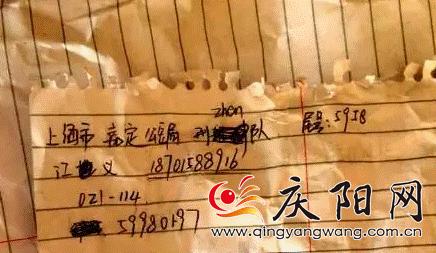 zhen
上海市 嘉定 公安局 刑 队 尾号:5958
江 义 18701588916
021-114
59980197
庆阳网
www.qingyangwang.com.cn